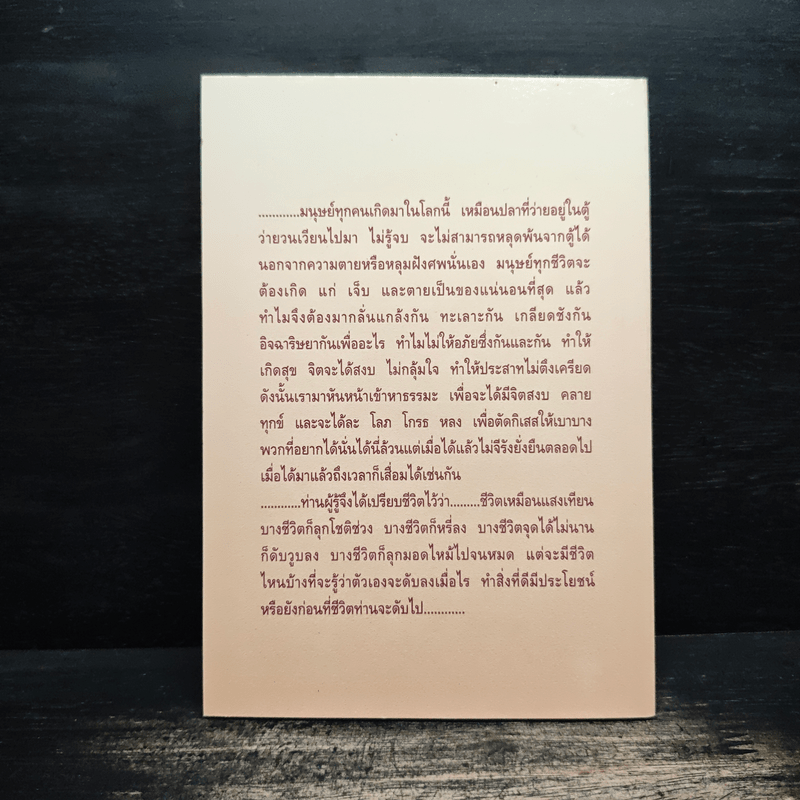 ............มนุษย์ทุกคนเกิดมาในโลกนี้ เหมือนปลาที่ว่ายอยู่ในตู้
ว่ายวนเวียนไปมา ไม่รู้จบ จะไม่สามารถหลุดพ้นจากตู้ได้
นอกจากความตายหรือหลุมฝังศพนั่นเอง มนุษย์ทุกชีวิตจะ
ต้องเกิด แก่ เจ็บ และตายเป็นของแน่นอนที่สุด แล้ว
ทำไมจึงต้องมากลั่นแกล้งกัน ทะเลาะกัน เกลียดชังกัน
อิจฉาริษยากันเพื่ออะไร ทำไมไม่ให้อภัยซึ่งกันและกัน ทำให้
เกิดสุข จิตจะได้สงบ ไม่กลุ้มใจ ทำให้ประสาทไม่ตึงเครียด
ดังนั้นเรามาหันหน้าเข้าหาธรรมะ เพื่อจะได้มีจิตสงบ คลาย
ทุกข์ และจะได้ละ โลภ โกรธ หลง เพื่อตัดกิเสสให้เบาบาง
พวกที่อยากได้นั่นได้นี่ล้วนแต่เมื่อได้แล้วไม่จีรังยั่งยืนตลอดไป
เมื่อได้มาแล้วถึงเวลาก็เสื่อมได้เช่นกัน
............ท่านผู้รู้จึงได้เปรียบชีวิตไว้ว่า.........ชีวิตเหมือนแสงเทียน
บางชีวิตก็ลุกโชติช่วง บางชีวิตก็หรี่ลง บางชีวิตจุดได้ไม่นาน
ก็ดับวูบลง บางชีวิตก็ลุกมอดไหม้ไปจนหมด แต่จะมีชีวิต
ไหนบ้างที่จะรู้ว่าตัวเองจะดับลงเมื่อไร ทำสิ่งที่ดีมีประโยชน์
หรือยังก่อนที่ชีวิตท่านจะดับไป............